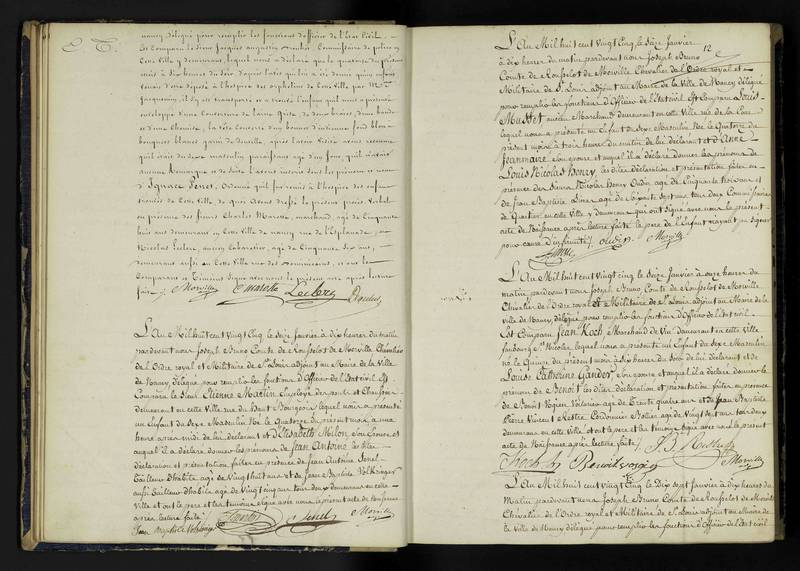 nancy délégué pour remplir les fonctions d'officier de l'État Civil.
Est Comparu le Sieur Jacques augustin Commissaire de police en
Cette Ville y demeurant, lequel nous a déclaré que le quatorze du présent
mois à dix heures du soir, d'après l'avis qui lui a été donné qu'un enfant
venait d'être déposé à l'hospice des orphelins de cette Ville par
Jacquemin, il s'y est transporté et a trouvé l'enfant qu'il nous a présenté
enveloppé d'une Couverture de laine Grise, de deux braies, d'une bande
et d'une Chemise, la tête couverte d'un bonnet d'indienne fond bleu à
bouquets blancs garni de dentelle, après l'avoir visité avons reconnu
qu'il était du sexe masculin paraissant âgé d'un jour, qu'il n'avait
aucune Remarque et de suite l'avons inscrit sous les prénom et nom
d'Ignace Tenet, Ordonné qu'il fut remis à l'hospice des enfans
trouvés de cette Ville, de quoi avons dressé le présent procès-Verbal
en présence des sieurs Charles Marotte, marchand, âgé de Cinquante
huit ans demeurant en cette Ville de nancy rue de l'Esplanade, et
Nicolas Leclerc, ancien Cabaretier, âgé de Cinquante six ans,
demeurant aussi en cette Ville rue des et ont le
Comparant et Témoins Signé avec nous le présent acte après lecture
faite. Morville C marotte Leclerc
L'An Mil huit cent Vingt Cinq le Seize Janvier à dix heures du matin
pardevant nous Joseph Bruno Comte de Morville Chevalier
de l'Ordre royal et Militaire de St. Louis adjoint au Maire de la Ville
de Nancy délégué pour remplir les fonctions d'Officier de l'Etat civil Est
Comparu le Sieur Etienne Martin Employé
demeurant en cette Ville rue du haut Bourgeois, lequel nous a présenté
un Enfant du Sexe Masculin Né le Quatorze du présent mois à une
heure après midi de lui déclarant et d'Elisabeth Millon son Epouse et
auquel il a déclaré donner les prénoms de Jean Antoine les dites
déclaration et présentation faites en présence de Jean Antoine Jenel
tailleur d'habits âgé de Vingt huit ans et de Jean Baptiste
aussi tailleur d'habits âgé de Vingt cinq ans tous deux demeurant en cette
Ville et ont le père et les témoins signé avec nous le présent acte de Naissance
après lecture faite. Martin Jenel Morville
Jean Baptiste
12
L'An Mil huit cent Vingt Cinq le Seize Janvier
à dix heures du matin pardevant nous Joseph Bruno
Comte de Morville Chevalier de l'Ordre royal et
Militaire de St. Louis adjoint au Maire de la Ville de Nancy délégué
pour remplir les fonctions d'Officier de l'Etat civil Est Comparu Louis
Musset ancien Marchand demeurant en cette Ville rue de la
lequel nous a présenté un Enfant du Sexe Masculin Né le Quatorze du
présent mois à trois heures du matin de lui déclarant et d'Anne
Jeanmaire son Epouse et auquel il a déclaré donner les prénoms de
Louis Nicolas Henry, les dites déclaration et présentation faites en
présence des Sieurs Nicolas Henry Oudin âgé de Cinquante trois ans et
de Jean Baptiste âgé de Soixante sept ans tous deux Commissaires
de Quartier en cette Ville y demeurant qui ont signé avec nous le présent
acte de Naissance après lecture faite le père de l'Enfant n'ayant pu signer
pour cause d'infirmité. oudin Morville
L'An Mil huit cent Vingt cinq le Seize Janvier à onze heures du
matin, pardevant nous Joseph Bruno Comte de Morville
Chevalier de l'Ordre royal et Militaire de St. Louis adjoint au Maire de la
Ville de Nancy, délégué pour remplir les fonctions d'Officier de l'Etat civil
Est Comparu Jean Koch Marchand de Vin Demeurant en cette Ville
faubourg St. Nicolas lequel nous a présenté un Enfant du Sexe Masculin
né le Quinze du présent mois à dix heures du soir de lui déclarant et de
Louise Catherine Gander son Epouse et auquel il a déclaré donner le
prénom de Benoit les dites déclaration et présentation faites en présence
de Benoit Voiturier âgé de Trente quatre ans et de Jean Baptiste
Pierre Vincent Cordonnier Bottier âgé de Vingt sept ans tous deux
demeurant en cette Ville et ont le père et les témoins signé avec nous le présent
acte de Naissance après lecture faite.
Koch Benoit Morville
L'An Mil huit cent Vingt Cinq le Dix Sept Janvier à dix heures du
Matin pardevant nous Joseph Bruno Comte de Morville
Chevalier de l'Ordre royal et Militaire de St. Louis adjoint au Maire de
la Ville de Nancy délégué pour remplir les fonctions d'Officier de l'Etat civil